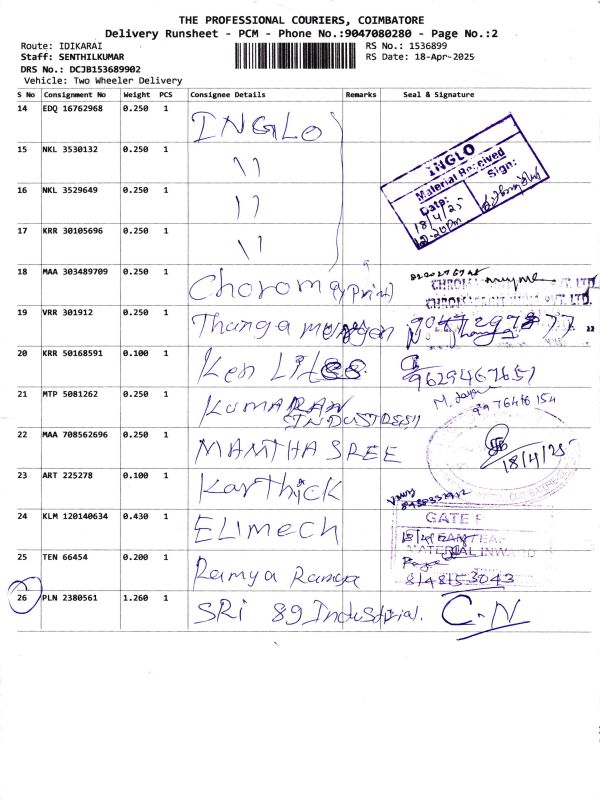 THE PROFESSIONAL COURIERS, COIMBATORE
Delivery Runsheet - PCM - Phone No.:9047080280 - Page No.:2
Route: IDIKARAI
RS No.: 1536899
Staff: SENTHILKUMAR
RS Date: 18-Apr-2025
DRS No.: DCJB153689902
Vehicle: Two Wheeler Delivery
S No Consignment No Weight PCS Consignee Details Remarks Seal & Signature
14 EDQ 16762968 0.250 1 INGLO
15 NKL 3530132 0.250 1 11
16 NKL 3529649 0.250 1 11
17 KRR 30105696 0.250 1 11
INGLO
Material Received
Date: Sign:
18/4/25
12.20pm
18 MAA 303489709 0.250 1 Chorom
19 VRR 301912 0.250 1 Thanga
20 KRR 50168591 0.100 1 Ken
9629467651
21 MTP 5081262 0.250 1 KUMARAN
INDUSTRESS
22 MAA 708562696 0.250 1 MAMTHA SREE
18/4/25
23 ART 225278 0.100 1 Karthick
24 KLM 120140634 0.430 1 ELIMECH
GATE
MATERIAL INWARD
25 TEN 66454 0.200 1 Ramya Ramya
8148153043
26 PLN 2380561 1.260 1 SRI 89 Industrial. C-N